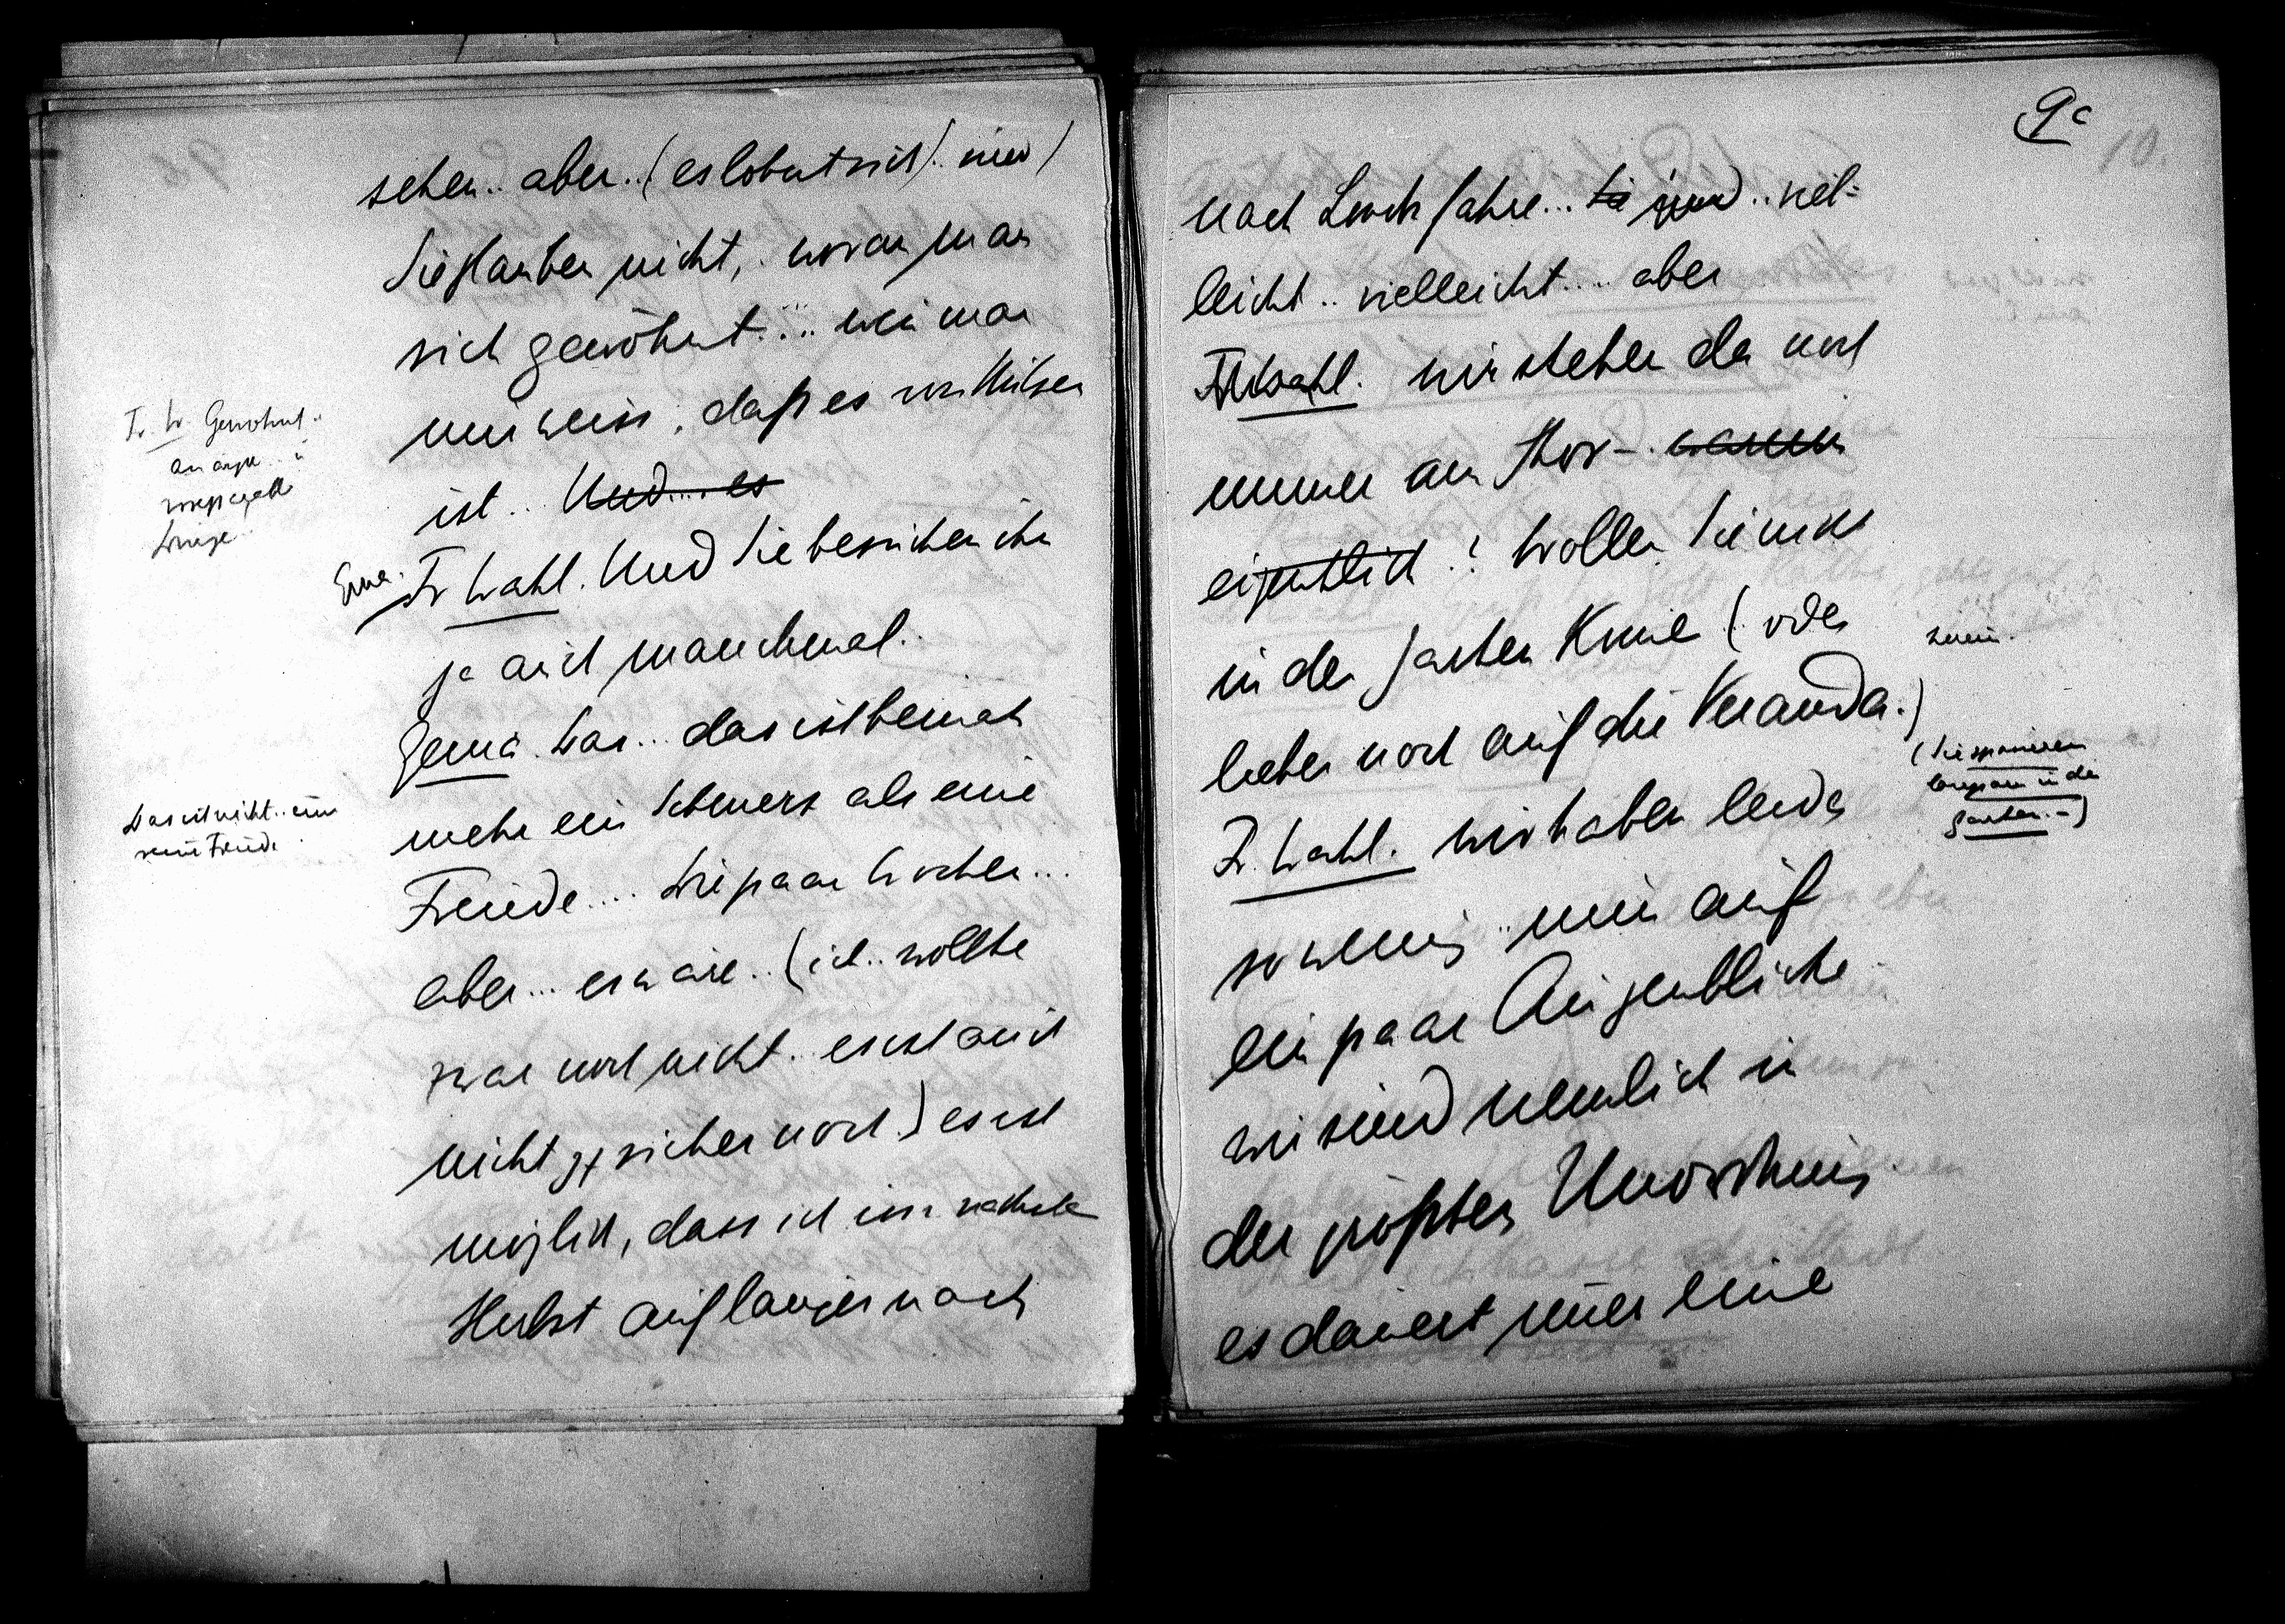 sehen.. aber..(es lohnt sich).. nur)
Sie glauben nicht, woran man
sich gewöhnt.... wenn man
nur weiss, daß es von Nutzen
ist.. Und.... es
Fr Wahl. Und Sie besuchen ihn
ja auch manchmal.
Das... das ist beinah
mehr ein Schmerz als eine
Freude.... Die paar Wochen...
aber... es wäre..(ich.. wollte
zwar noch nicht.. es ist auch
nicht sicher noch) es ist
möglich, dass ich im nächsten
Herbst auf länger nach
Fr. W. Gewöhnt..
Das ist nicht.. eine
reine Freude.
9c
10.
nach fahre... Sie sind.. viel-
leicht.. vielleicht.... aber
Fr Wahl. wir stehen da noch
immer am Thor-. warum
eigentlich? Wollen Sie nicht
in den Garten (oder
lieber noch auf die Veranda.)
(Sie spazieren
langsam in den
Garten.-)
Fr. Wahl. Wir haben leider
so wenig.. nur auf
ein paar Augenblicke
wir sind nemlich in
der größten Unordnung
es dauert immer eine